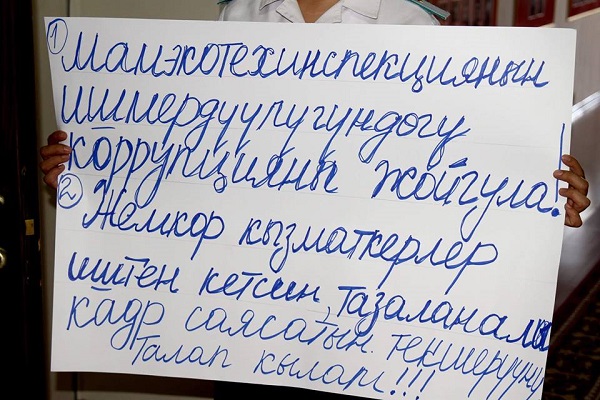 ① Мамэкотехинспекциянын
ишмердүүлүгүндөгү
коррупцияны жойгула!
② Жемкор кызматкерлер
иштен кетсин, тазаланалы
кадр саясатын текшерүүнү
Талап кылам!!!